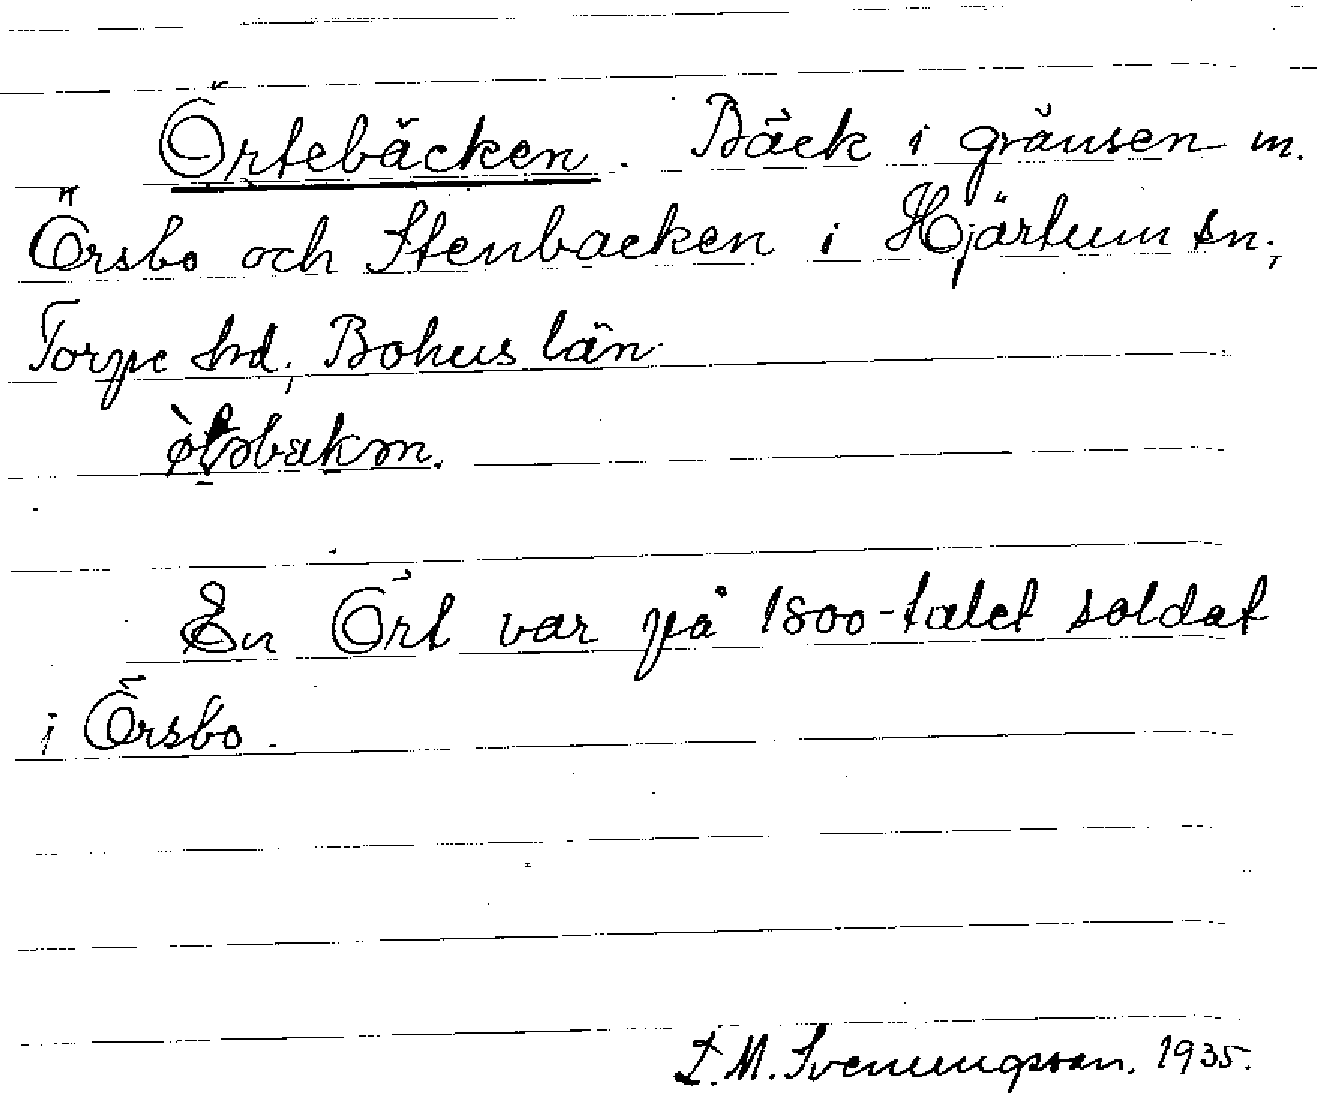 Örtebäcken. Bäck i gränsen m.
Örsbo och Stenbacken i Hjärtum sn,
Torpe hd, Bohus län.
En Ört var på 1800-talet soldat
i Örsbo.
S. M. Svenungsson. 1935.